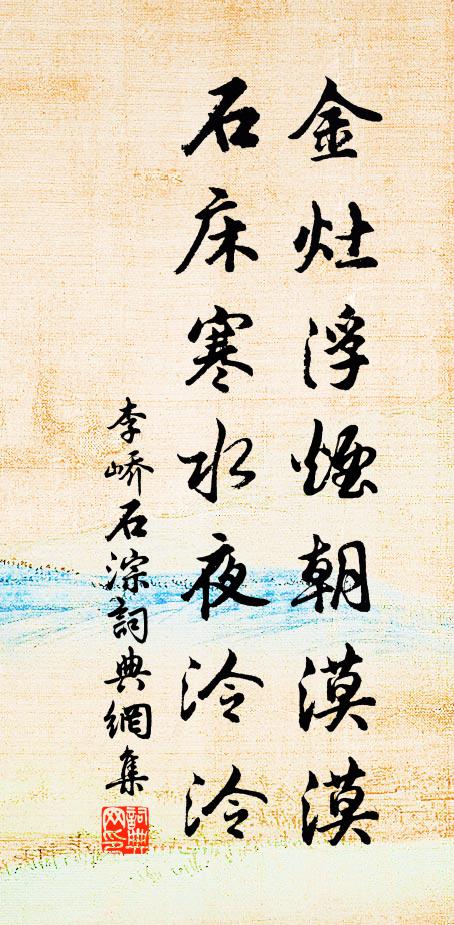 金灶浮煙朝漠漠
石床寒水夜泠泠
李嶠石淙詞典網集